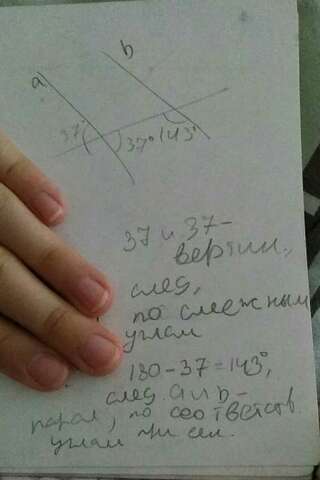 a
b
37°
37° 143°
37 и 37 -
вертик.,
след,
по смежным
углам
180-37=143°,
след. a и b -
парал, по соответств.
углам